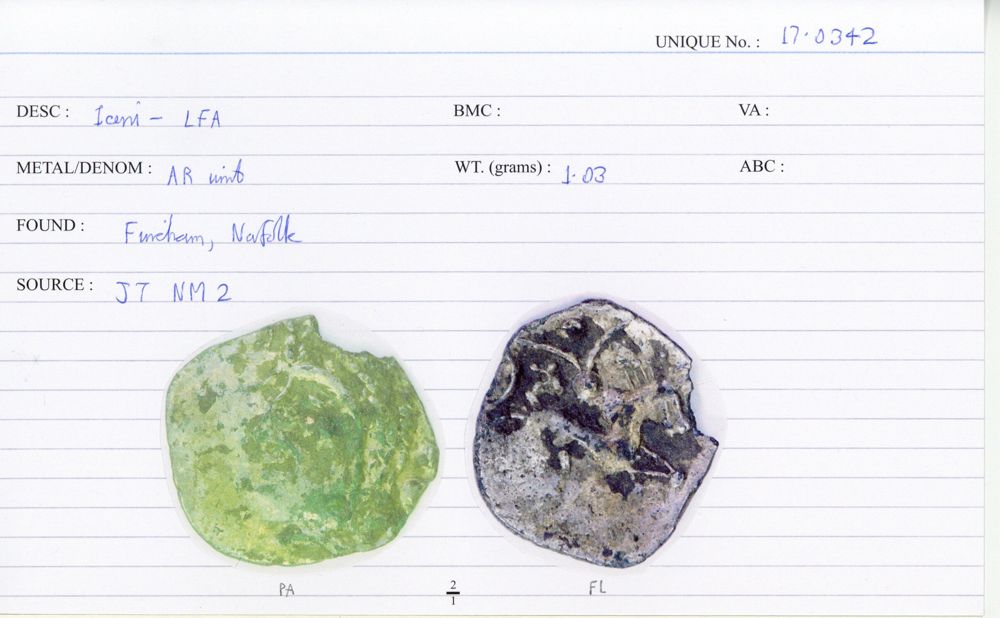 UNIQUE No. : 17.0342
DESC : Iceni - LFA BMC : VA :
METAL/DENOM : AR unit WT. (grams) : 1.03 ABC :
FOUND : Fincham, Norfolk
SOURCE : JT NM 2
PA 2/1 FL